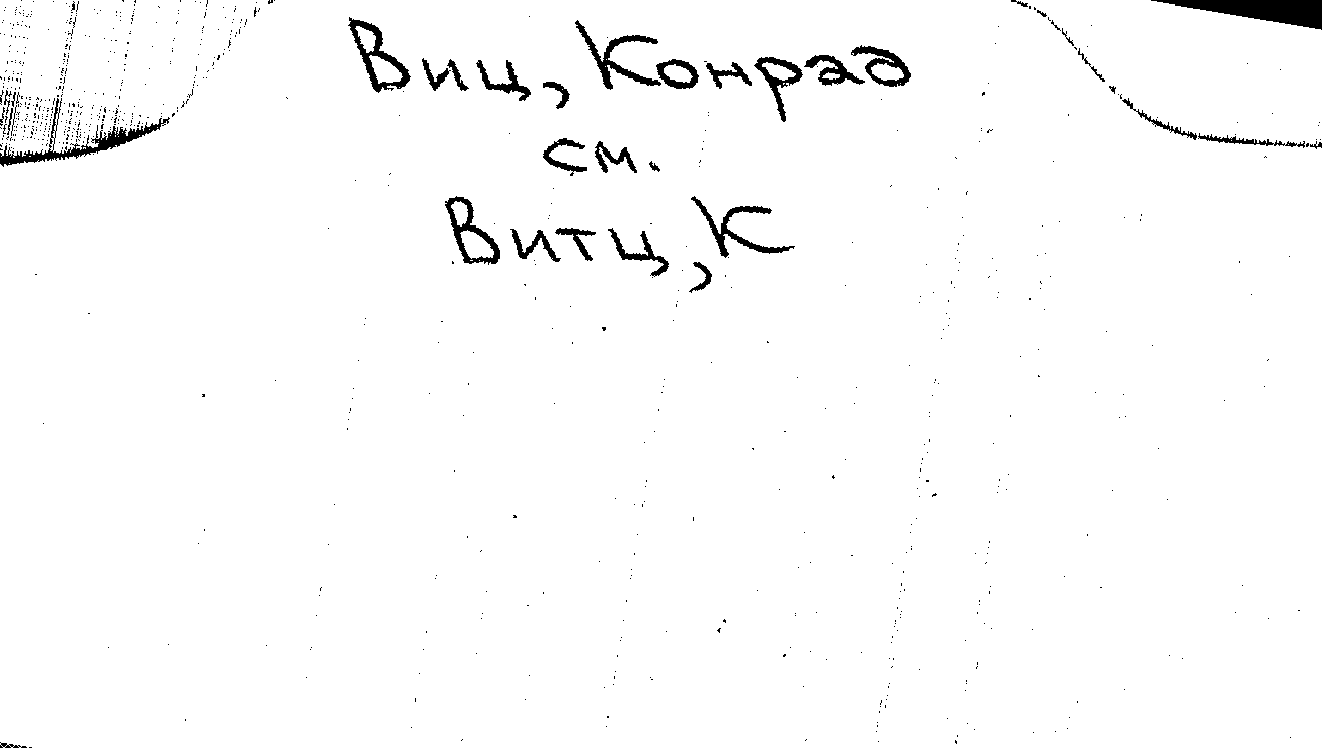 Виц, Конрад
см.
Витц, К